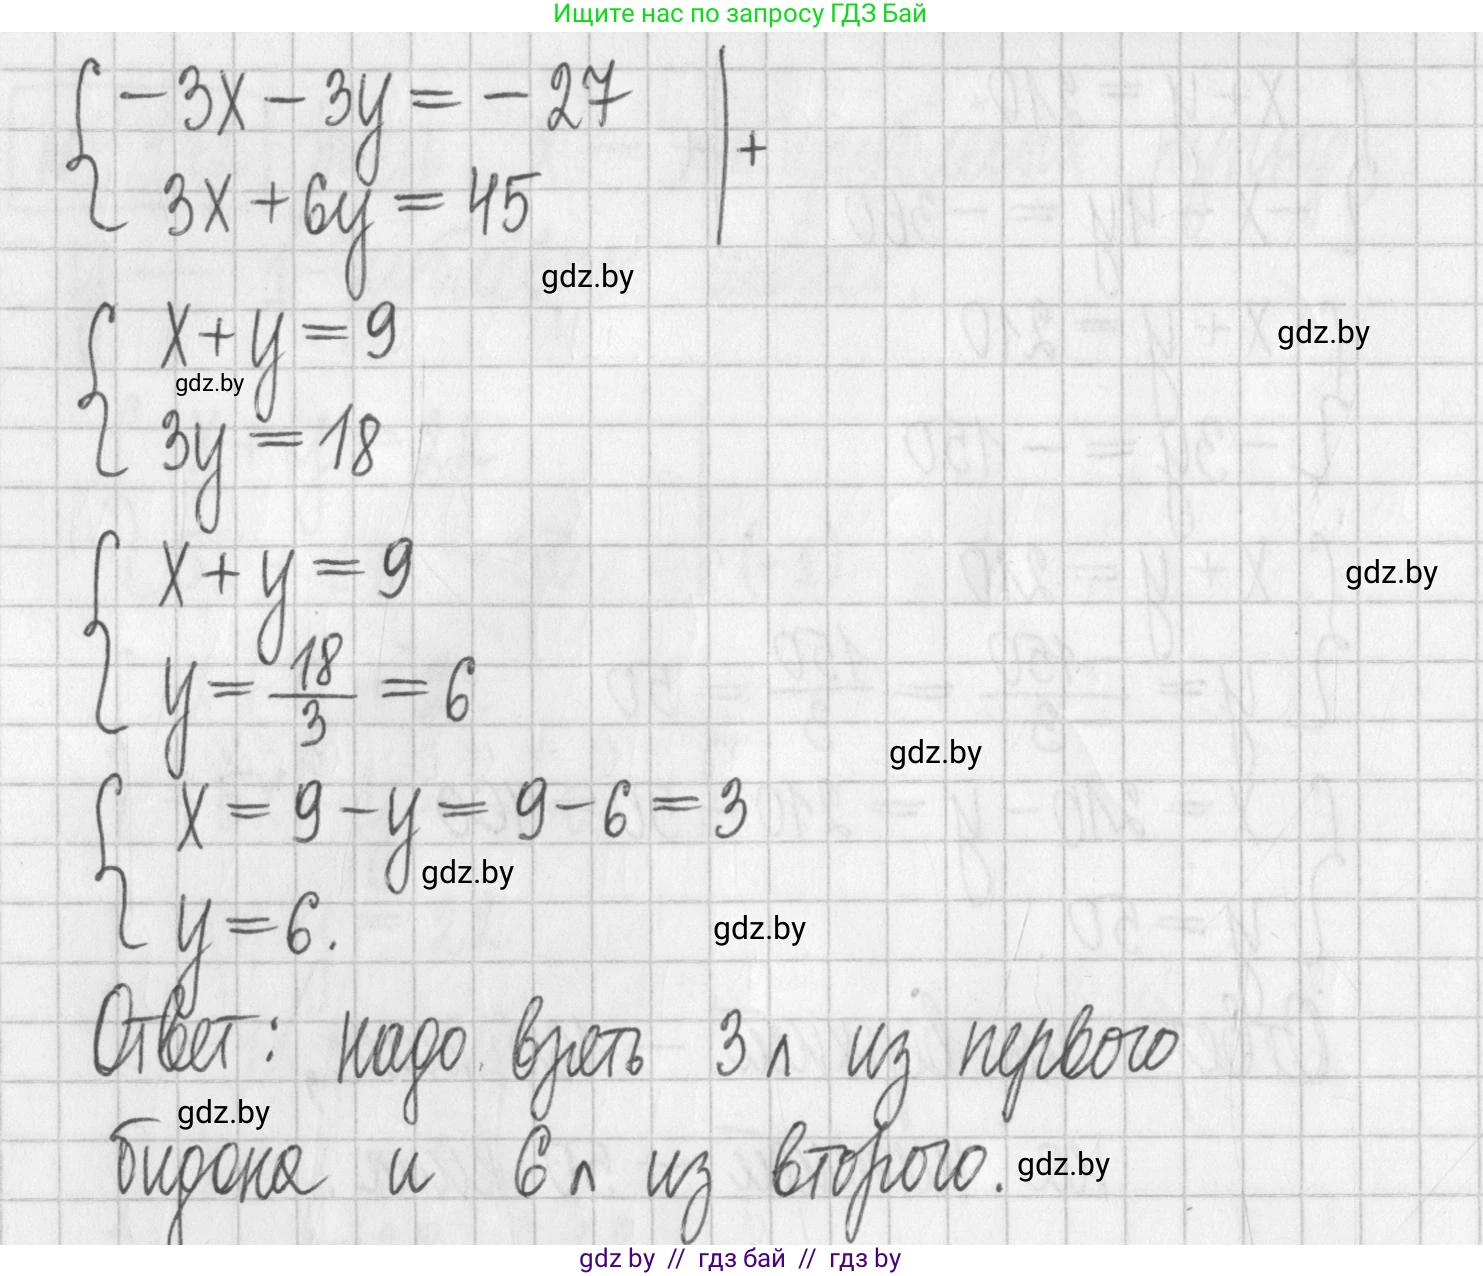 Ищите нас по запросу ГДЗ Бай
-3x - 3y = -27 | +
3x + 6y = 45
gdz.by
x + y = 9
gdz.by
gdz.by
3y = 18
x + y = 9
gdz.by
y = 18/3 = 6
gdz.by
x = 9 - y = 9 - 6 = 3
gdz.by
y = 6.
gdz.by
Ответ: надо взять 3 л из первого
gdz.by
бидона и 6 л из второго.
gdz.by
gdz by // гдз бай // гдз by